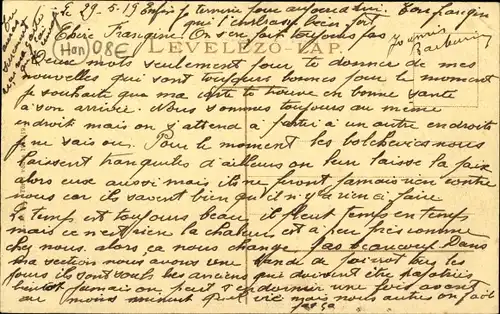 Le 29.5.19 Enfin je termine pour aujourd'hui. Ton frangin
qui t'embrasse bien fort
Chère Frangine! On s'en fait toujours pas
(Hon) 08€
LEVELEZŐ-LAP.
Deux mots seulement pour te donner de mes
nouvelles qui sont toujours bonnes pour le moment
je souhaite que ma carte te trouve en bonne santé
à son arrivée. Nous sommes toujours au même
endroit mais on s'attend à partir à un autre endroits
je ne sais ou. Pour le moment les bolcheviks nous
laissent tranquilles d'ailleurs on leur laisse la paix
alors eux aussi mais ils ne feront jamais rien contre
nous car ils savent bien qu'il n'y a rien à faire
Le temps est toujours beau il pleut temps en temps
mais ce n'est rien la chaleur est a peu près comme
chez nous. alors ça nous change pas beaucoup Dans
ma section nous avons une bande de tous les
jours ils sont souls les anciens qui doivent être
bientôt jamais on peut s'endormir une fois avant
au moins minuit quel vie mais nous autres on
pas ça